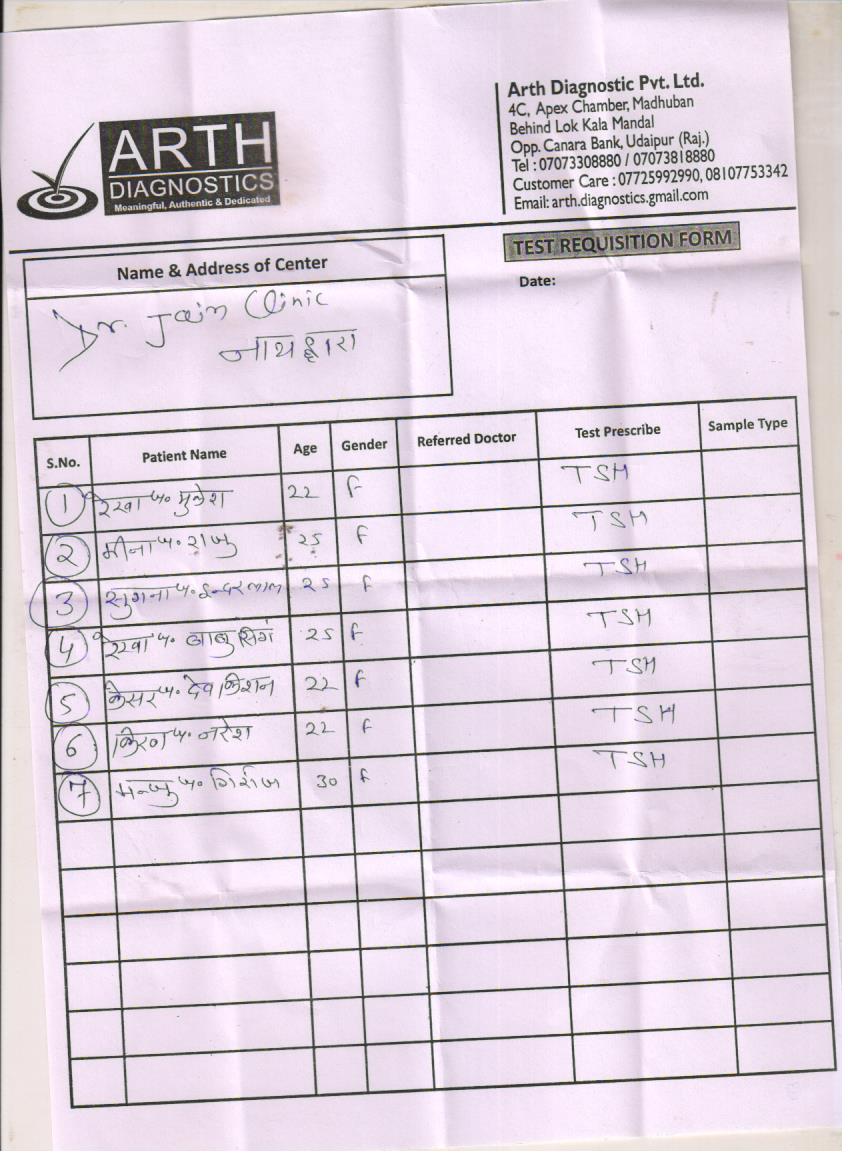 ARTH
DIAGNOSTICS
Meaningful, Authentic & Dedicated
Arth Diagnostic Pvt. Ltd.
4C, Apex Chamber, Madhuban
Behind Lok Kala Mandal
Opp. Canara Bank, Udaipur (Raj.)
Tel : 07073308880 / 07073818880
Customer Care : 07725992990, 08107753342
Email: arth.diagnostics.gmail.com
TEST REQUISITION FORM
Date:
Name & Address of Center
Dr. Jain Clinic
नाथद्वारा
S.No. Patient Name Age Gender Referred Doctor Test Prescribe Sample Type
1 रेखा प. मुकेश 22 F TSH
2 मीना प. राजु 25 F TSH
3 सुगना प. इन्दरलाल 25 F TSH
4 रेखा प. बाबु सिंग 25 F TSH
5 केसर प. देव किशन 22 F TSH
6 किरण प. नरेश 22 F TSH
7 मन्जु प. गिर्राज 30 F TSH